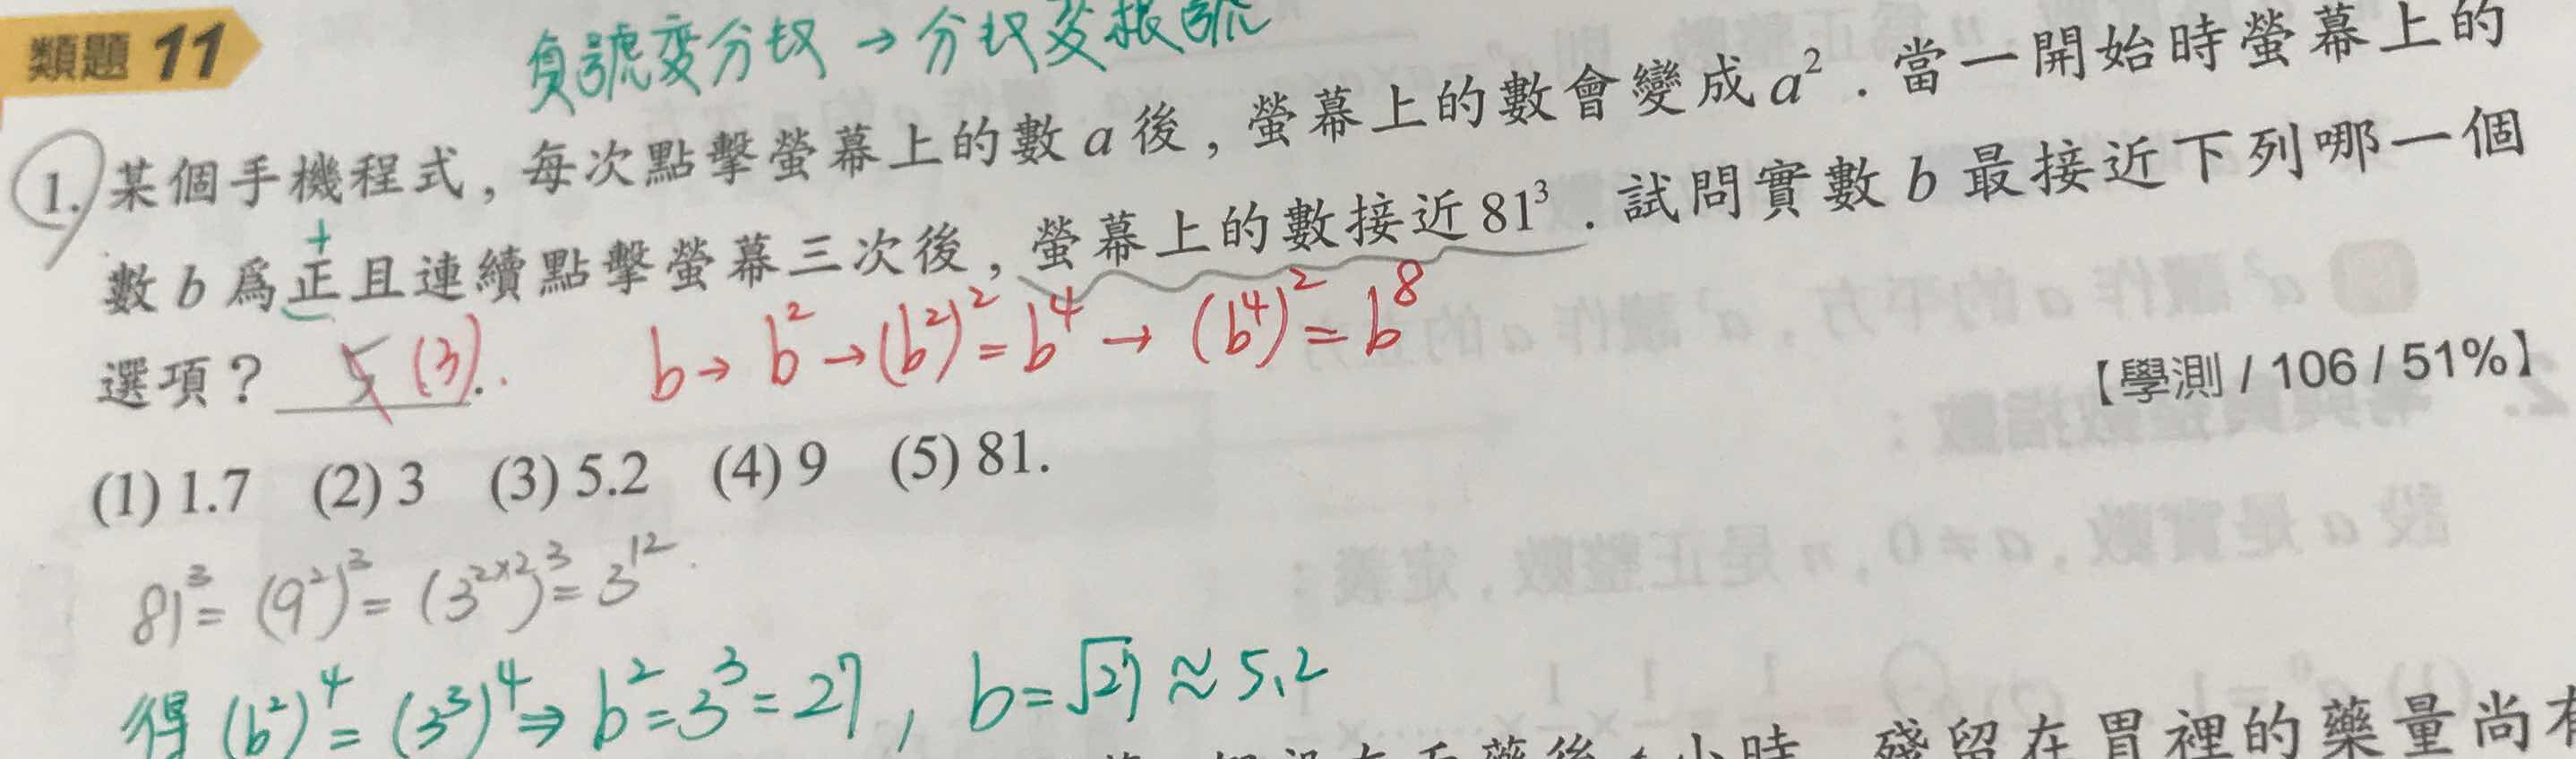 類題 11
負號變分母 → 分母變根號
1. 某個手機程式，每次點擊螢幕上的數 a 後，螢幕上的數會變成 a²．當一開始時螢幕上的
+
數 b 爲正且連續點擊螢幕三次後，螢幕上的數接近 81³．試問實數 b 最接近下列哪一個
選項？ 5 (3).
b → b² → (b²)² = b⁴ → (b⁴)² = b⁸
【學測 / 106 / 51%】
(1) 1.7 (2) 3 (3) 5.2 (4) 9 (5) 81.
81³ = (9²)³ = (3²ˣ²)³ = 3¹².
得 (b²)⁴ = (3³)⁴ ⇒ b² = 3³ = 27, b = √27 ≈ 5.2
小時 殘留在胃裡的藥量尚有